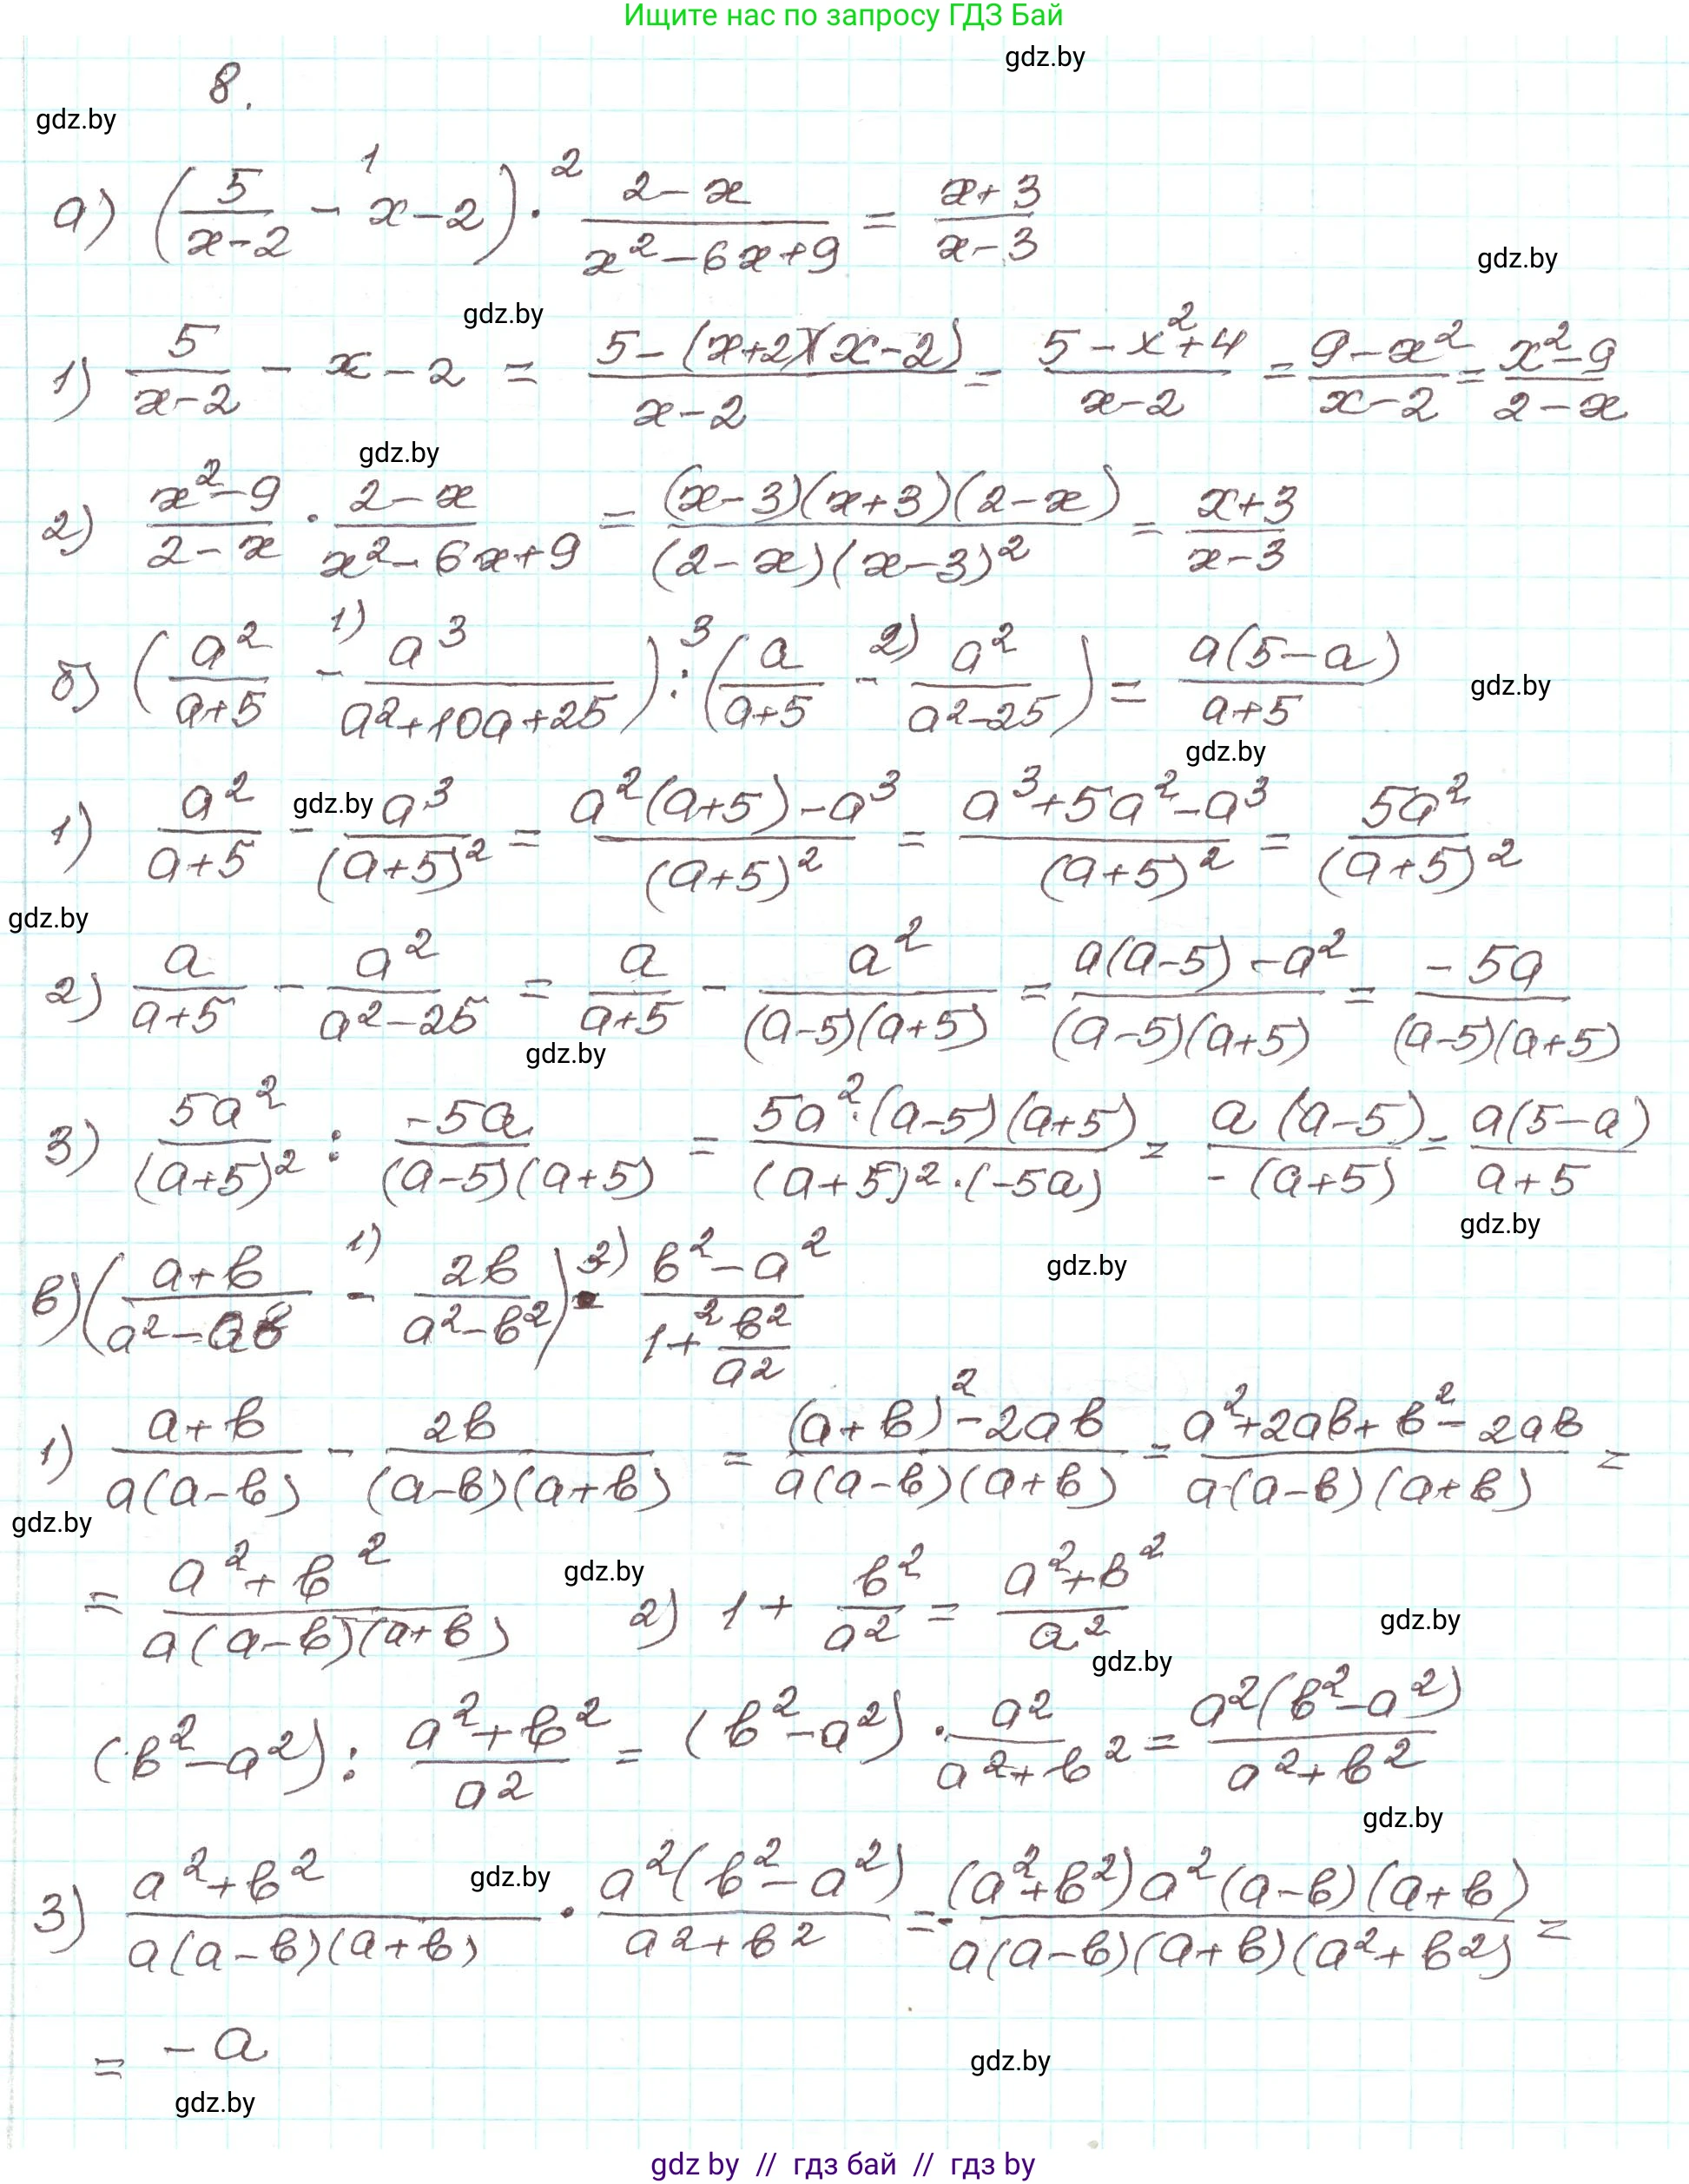 Ищите нас по запросу ГДЗ Бай
gdz.by
8.
gdz.by
а) (5/(x-2) -¹ x-2) ·² (2-x)/(x²-6x+9) = (x+3)/(x-3)
gdz.by
gdz.by
1) 5/(x-2) - x - 2 = (5-(x+2)(x-2))/(x-2) = (5-x²+4)/(x-2) = (9-x²)/(x-2) = (x²-9)/(2-x)
gdz.by
2) (x²-9)/(2-x) · (2-x)/(x²-6x+9) = ((x-3)(x+3)(2-x))/((2-x)(x-3)²) = (x+3)/(x-3)
б) (a²/(a+5) -¹⁾ a³/(a²+10a+25)) :³ (a/(a+5) -²⁾ a²/(a²-25)) = a(5-a)/(a+5)
gdz.by
gdz.by
gdz.by
1) a²/(a+5) - a³/(a+5)² = (a²(a+5)-a³)/(a+5)² = (a³+5a²-a³)/(a+5)² = 5a²/(a+5)²
gdz.by
2) a/(a+5) - a²/(a²-25) = a/(a+5) - a²/((a-5)(a+5)) = (a(a-5)-a²)/((a-5)(a+5)) = -5a/((a-5)(a+5))
gdz.by
3) 5a²/(a+5)² : -5a/((a-5)(a+5)) = (5a²·(a-5)(a+5))/((a+5)²·(-5a)) = a(a-5)/(-(a+5)) = a(5-a)/(a+5)
gdz.by
в) ((a+b)/(a²-ab) -¹⁾ 2b/(a²-b²)) ·³⁾ (b²-a²)/(1+² b²/a²)
gdz.by
1) (a+b)/(a(a-b)) - 2b/((a-b)(a+b)) = ((a+b)²-2ab)/(a(a-b)(a+b)) = (a²+2ab+b²-2ab)/(a(a-b)(a+b)) =
gdz.by
= (a²+b²)/(a(a-b)(a+b)) 2) 1 + b²/a² = (a²+b²)/a²
gdz.by
gdz.by
gdz.by
(b²-a²) : (a²+b²)/a² = (b²-a²) · a²/(a²+b²) = a²(b²-a²)/(a²+b²)
gdz.by
3) (a²+b²)/(a(a-b)(a+b)) · a²(b²-a²)/(a²+b²) = - ((a²+b²)a²(a-b)(a+b))/(a(a-b)(a+b)(a²+b²)) =
gdz.by
= -a
gdz.by
gdz.by
gdz by // гдз бай // гдз by